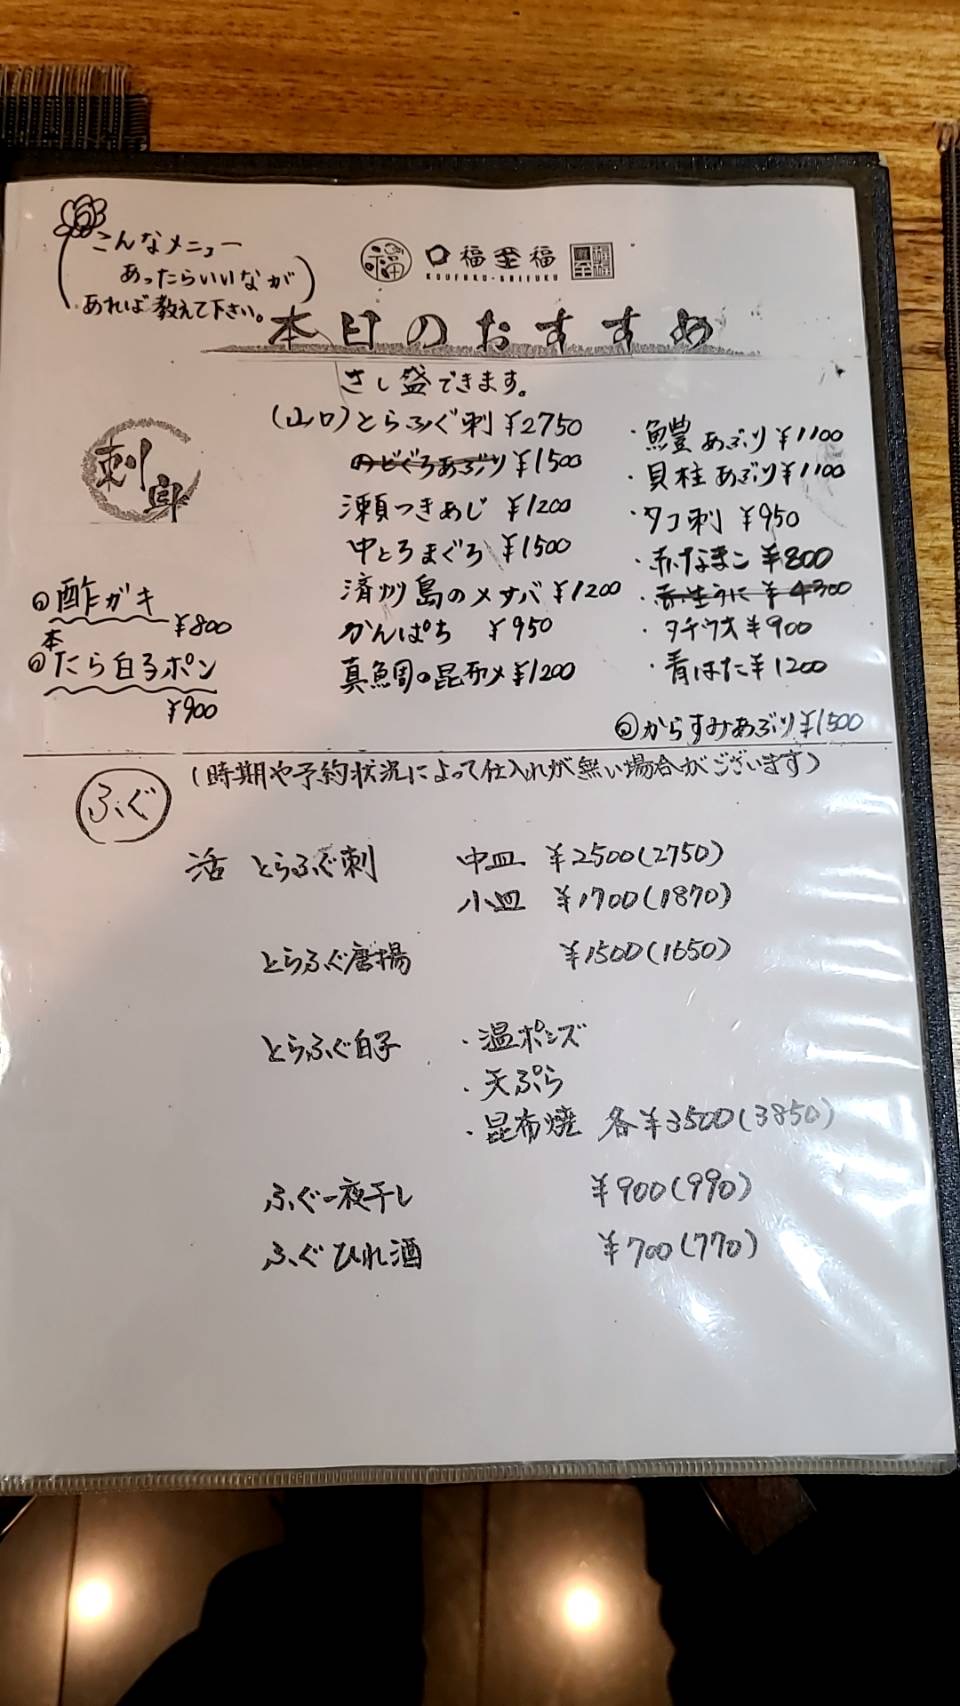 こんなメニュー
あったらいいなが
あれば教えて下さい。
福
口福至福
KOUFUKU-SHIFUKU
本日のおすすめ
さし盛できます。
刺身
(山口)とらふぐ刺 ¥2750
のどぐろあぶり ¥1500
瀬つきあじ ¥1200
中とろまぐろ ¥1500
済州島のメサバ ¥1200
かんぱち ¥950
真鯛の昆布〆 ¥1200
・鱧あぶり ¥1100
・貝柱あぶり ¥1100
・タコ刺 ¥950
・赤なまこ ¥800
・赤生うに ¥4300
・タチウオ ¥900
・青はた ¥1200
からすみあぶり ¥1500
酢ガキ
¥800
本
たら白子ポン
¥900
(時期や予約状況によって仕入れが無い場合がございます)
ふぐ
活 とらふぐ刺 中皿 ¥2500(2750)
小皿 ¥1700(1870)
とらふぐ唐揚 ¥1500(1650)
とらふぐ白子 ・温ポンズ
・天ぷら
・昆布焼 各¥3500(3850)
ふぐ一夜干し ¥900(990)
ふぐひれ酒 ¥700(770)